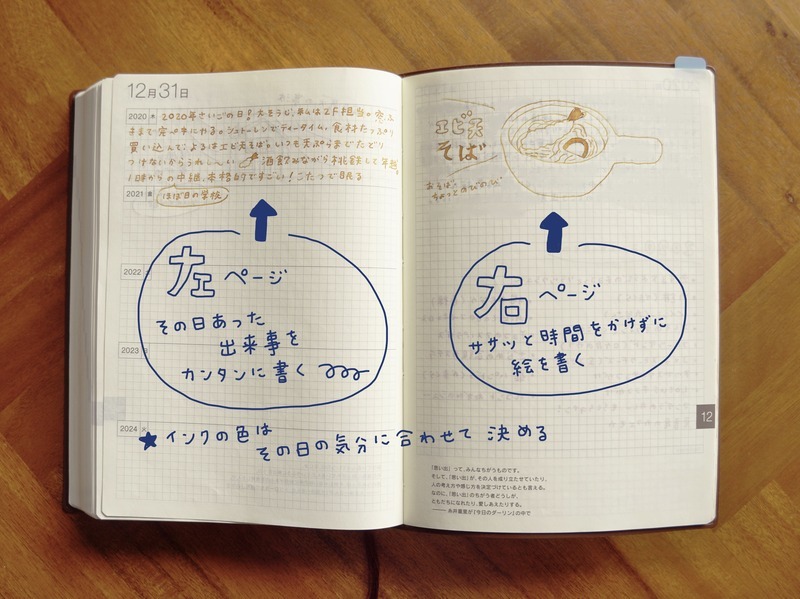 12月31日
2020 木 2020年さいごの日!
買い込んで、よるはエビ天そば。いつも天ぷらまでたどり
つけないからうれしいい 酒飲みながら桃鉄して年越。
1時からの中継、本格的ですごい!こたつで眠る
2021 金 ほぼ日の学校
2022 土
左ページ
その日あった
出来事を
カンタンに書く
2023 日
2024 火
エビ天
そば
おそば、
ちょっとのびのび
右ページ
ササッと時間をかけずに
絵を書く
12
★インクの色は
その日の気分に合わせて 決める
「思い出」って、みんなちがうものです。
そして、「思い出」が、その人を成り立たせていたり、
人の考え方や感じ方を決定づけているとも言える。
なのに、「思い出」のちがう者どうしが、
ともだちになれたり、愛しあえたりする。
糸井重里が『今日のダーリン』の中で